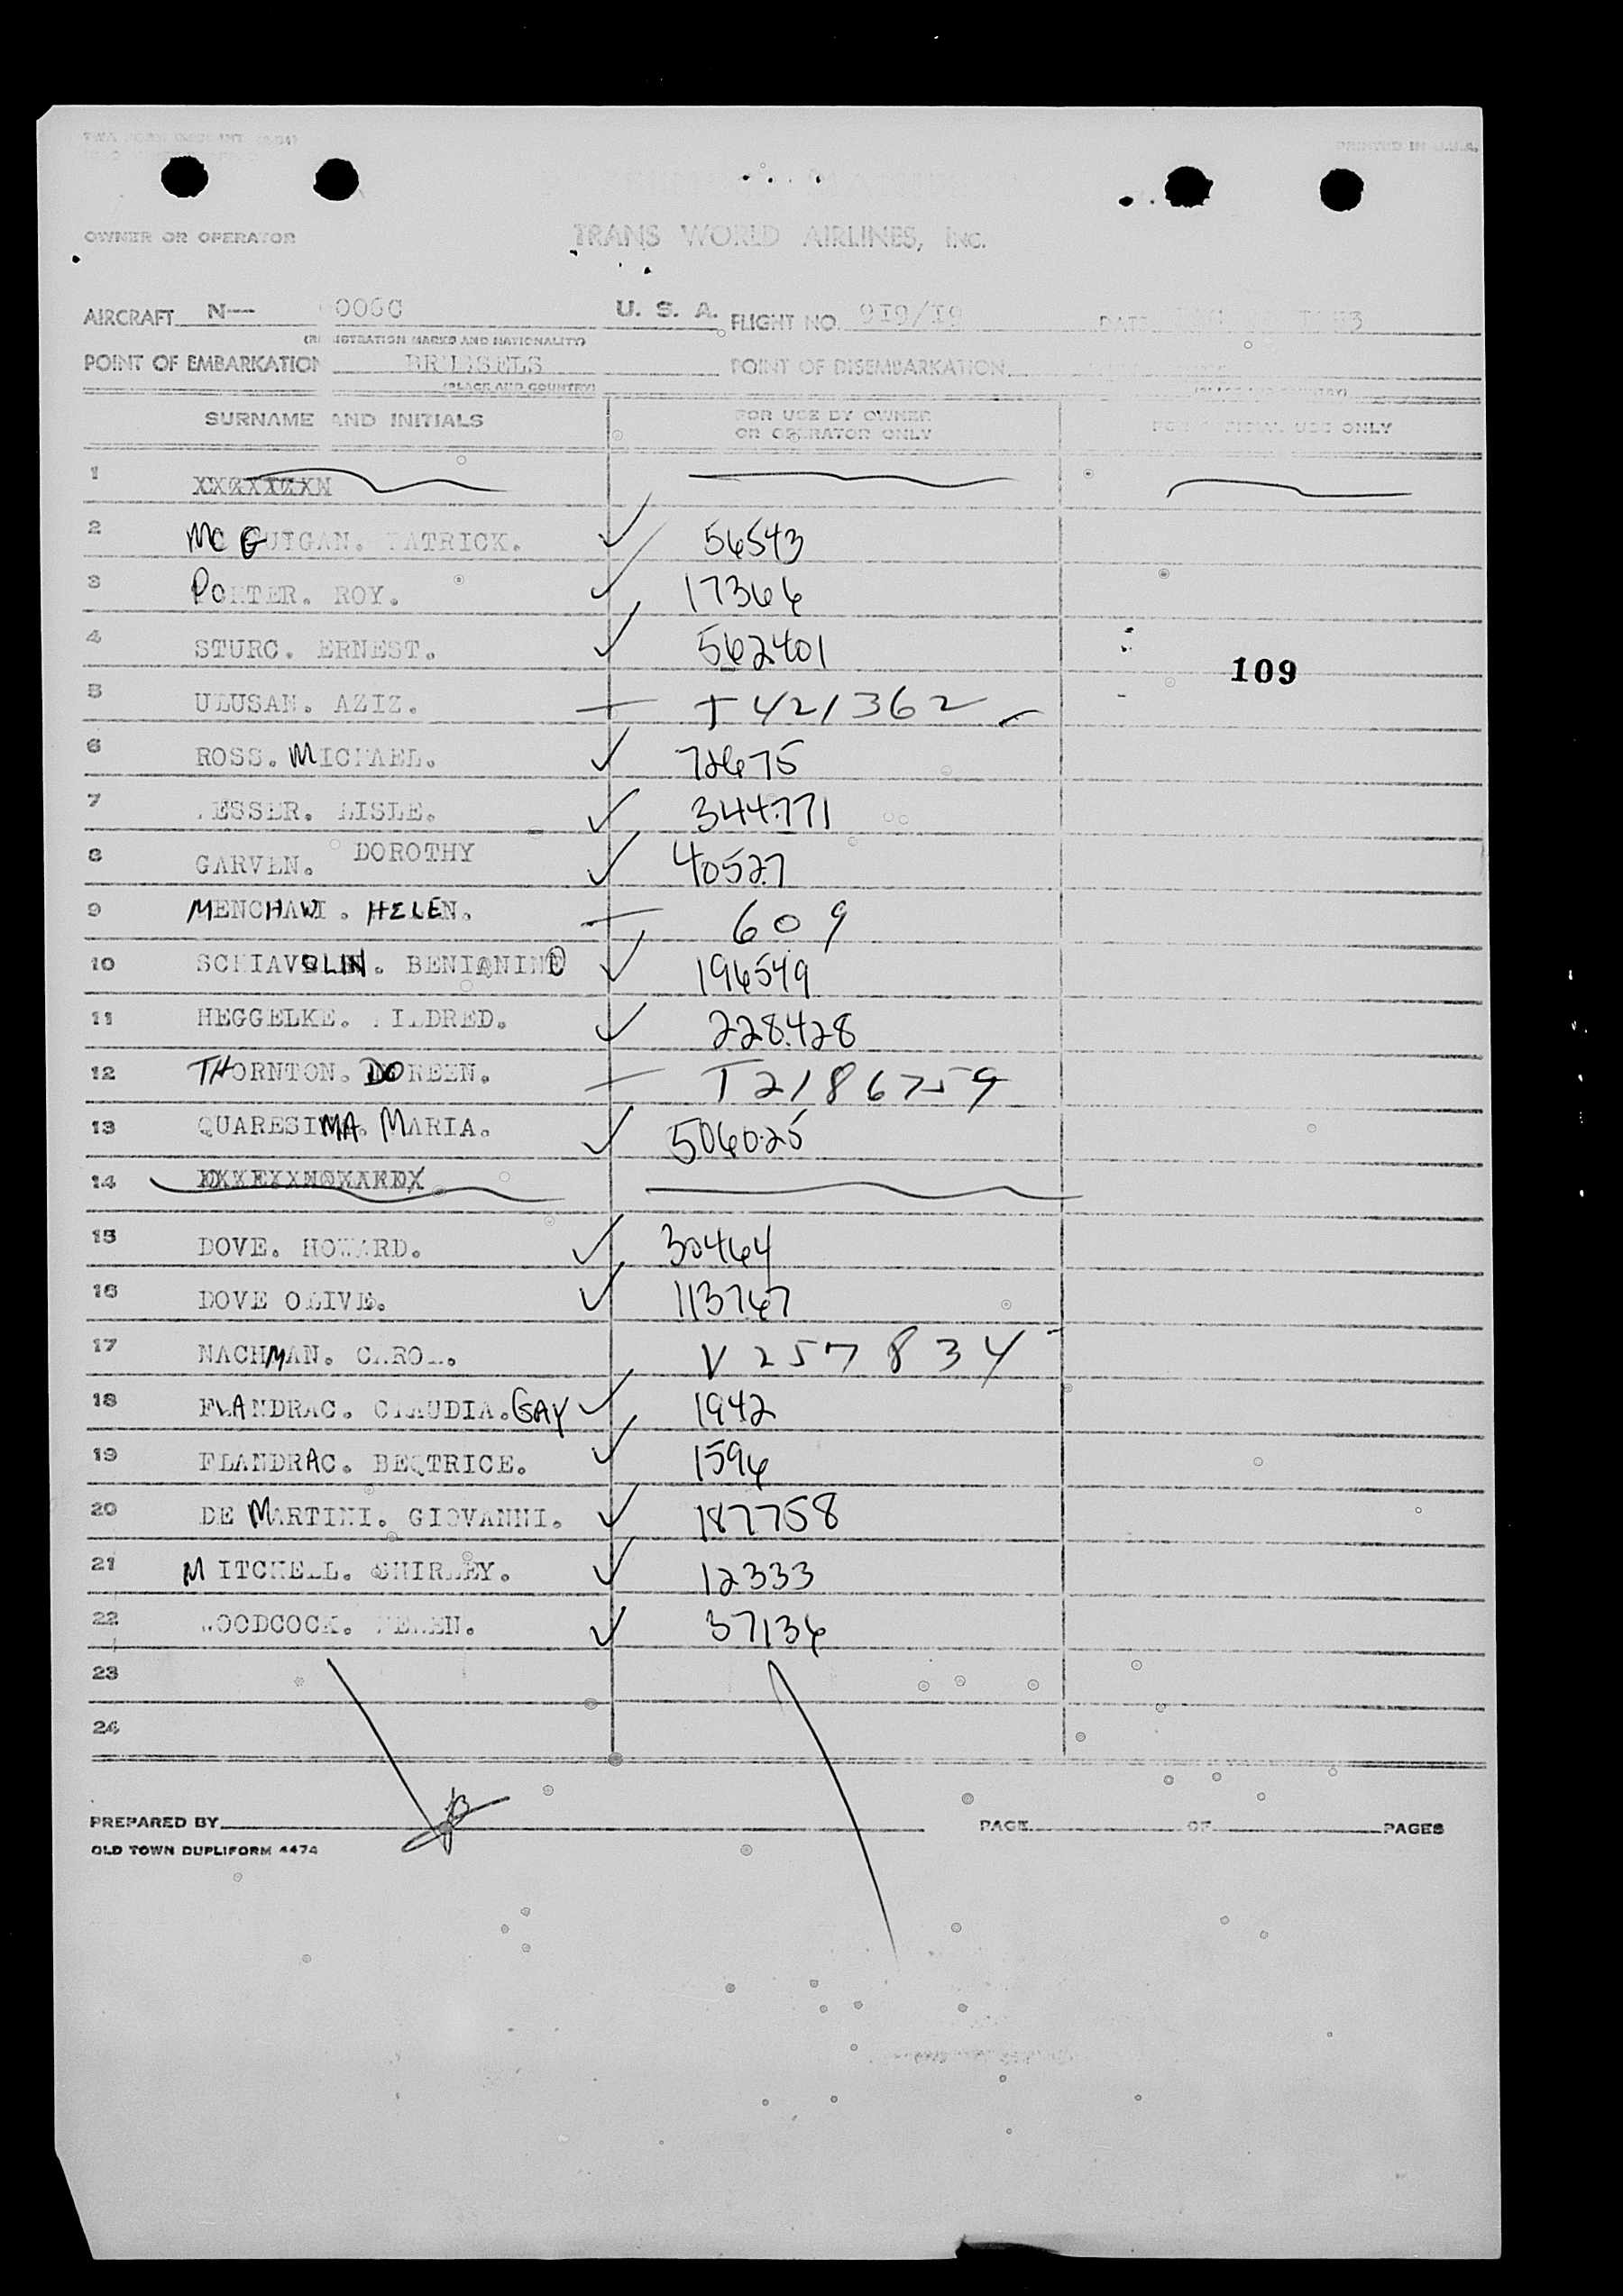 PRINTED IN U.S.A.
OWNER OR OPERATOR TRANS WORLD AIRLINES, INC.
AIRCRAFT N— U. S. A. FLIGHT NO. 919/19 DATE
(REGISTRATION MARKS AND NATIONALITY)
POINT OF EMBARKATION BRUSSELS POINT OF DISEMBARKATION
(PLACE AND COUNTRY)
SURNAME AND INITIALS FOR USE BY OWNER OR OPERATOR ONLY USE ONLY
1
2 MCGUIGAN. PATRICK. ✓ 56543
3 PORTER. ROY. ✓ 17366
4 STURC. ERNEST. ✓ 562401
109
5 ULUSAN. AZIZ. — T421362
6 ROSS. MICHAEL. ✓ 72675
7 LISLE. ✓ 344771
8 GARVEN. DOROTHY ✓ 40527
9 HELEN. — 609
10 ✓ 196549
11 HEGGELKE. MILDRED. ✓ 228428
12 THORNTON. DOREEN. — T2186759
13 QUARESIMA. MARIA. ✓ 506025
14
15 DOVE. HOWARD. ✓ 30464
16 DOVE OLIVE. ✓ 113767
17 NACHMAN. CAROL. V257834
18 FLANDRAC. CLAUDIA. GAY ✓ 1942
19 FLANDRAC. BEQTRICE. ✓ 1596
20 DE MARTINI. GIOVANNI. ✓ 187758
21 MITCHELL. SHIRLEY. ✓ 12333
22 WOODCOCK. ✓ 37136
23
24
PREPARED BY PAGE OF PAGES
OLD TOWN DUPLIFORM 4474